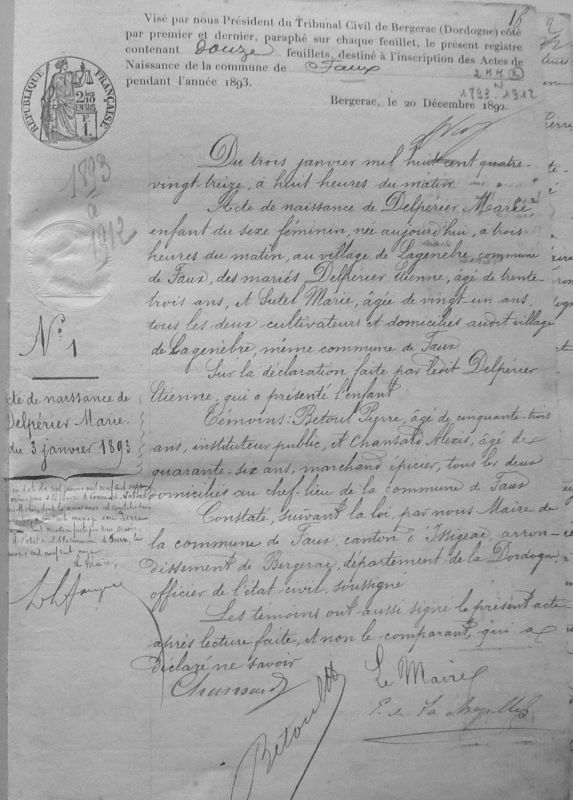 Visé par nous Président du Tribunal Civil de Bergerac (Dordogne) côté
par premier et dernier, paraphé sur chaque feuillet, le présent registre
contenant douze feuillets, destiné à l'inscription des Actes de
Naissance de la commune de Faux
pendant l'année 1893.
1893-1912
Bergerac, le 20 Décembre 1892.
RÉPUBLIQUE FRANÇAISE
1893
à
1912
Du trois janvier mil huit cent quatre-
vingt-treize, à huit heures du matin
Acte de naissance de Delpérier Marie
enfant du sexe féminin, née aujourd'hui, à trois
heures du matin, au village de Lagenèbre, commune
de Faux, des mariés Delpérier Etienne, âgé de trente-
trois ans, et Sutel Marie, âgée de vingt-un ans,
tous les deux cultivateurs et domiciliés audit village
de Lagenèbre, même commune de Faux
Sur la déclaration faite par ledit Delpérier
Etienne, qui a présenté l'enfant
Témoins: Betoul Pierre, âgé de cinquante-trois
ans, instituteur public, et Chansard Alexis, âgé de
quarante-six ans, marchand épicier, tous les deux
domiciliés au chef-lieu de la commune de Faux
Constaté, suivant la loi, par nous Maire de
la commune de Faux, canton d'Issigeac, arron-
dissement de Bergerac, département de la Dordogne,
officier de l'état civil, soussigné
Les témoins ont aussi signé le présent acte
après lecture faite, et non le comparant, qui a
déclaré ne savoir
Le Maire
Betoul
N° 1
Acte de naissance de
Delpérier Marie
du 3 janvier 1893
le Maire,